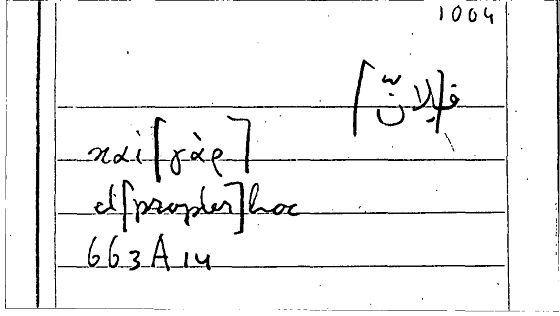 1004
ف[لانّ]
καὶ [γὰρ]
et [propter] hoc
663 A 14